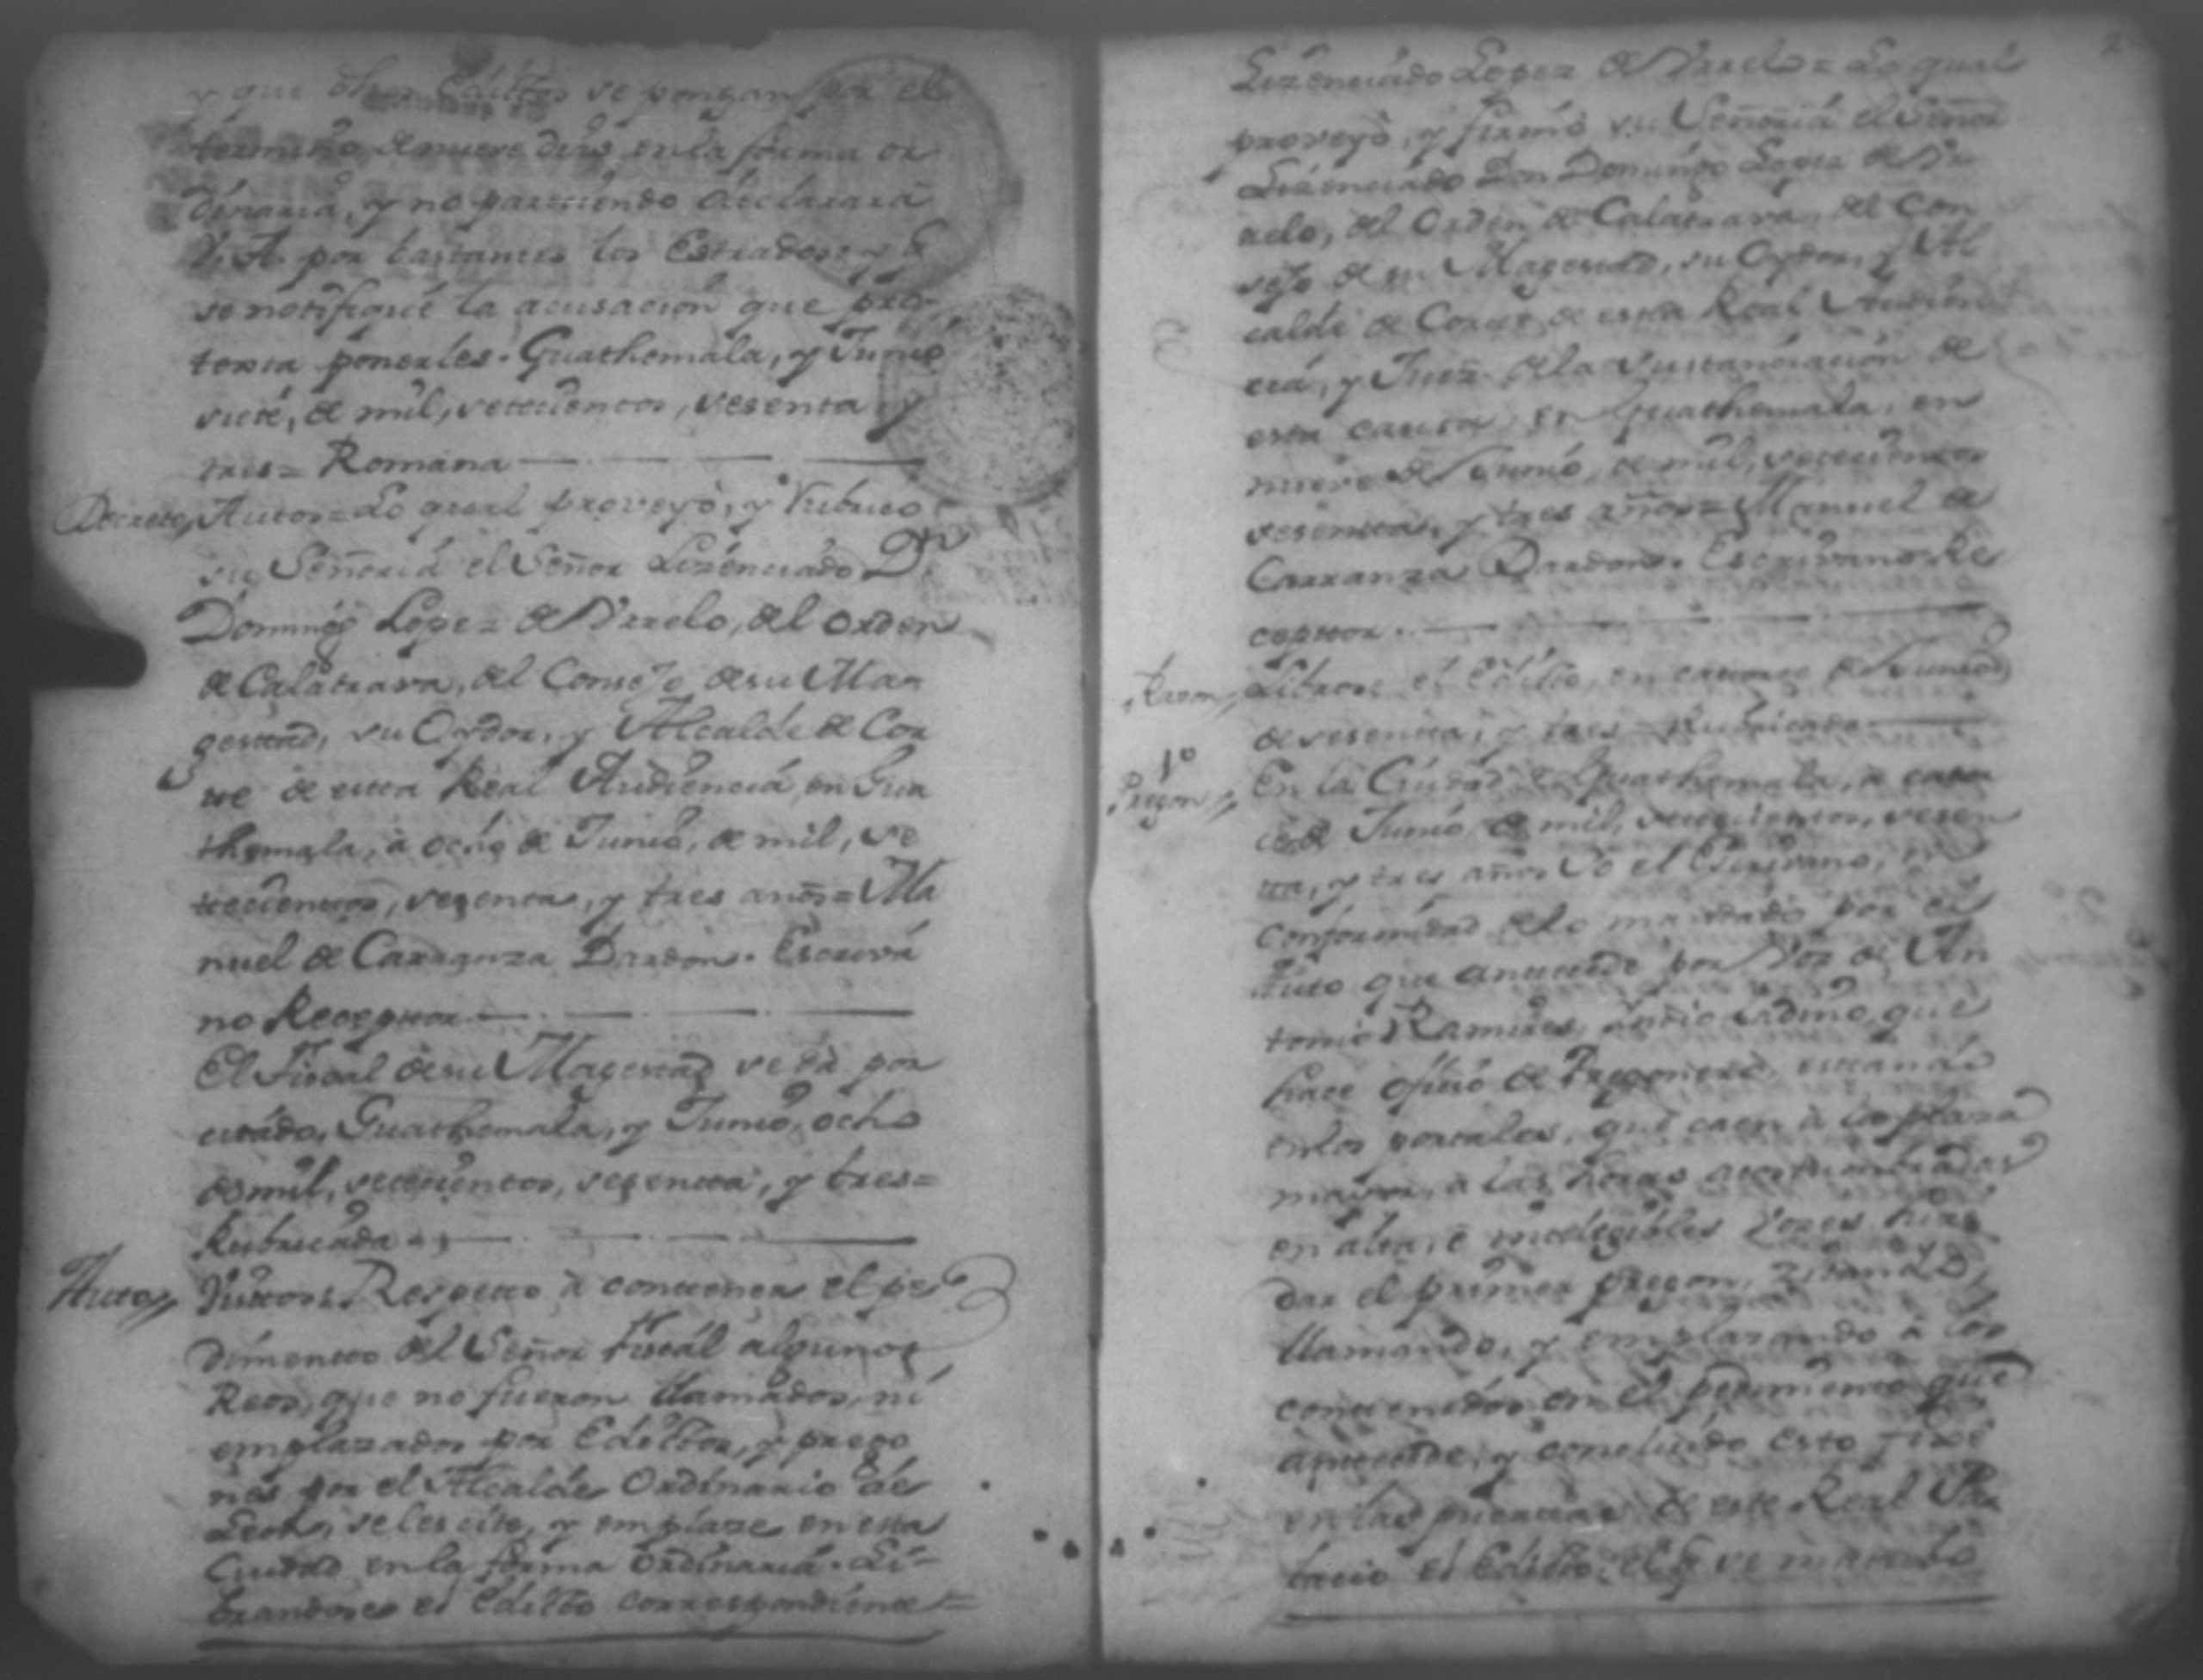 y que otros Edictos se pongan por el
termino de nueve dias en la forma or
dinaria, y no pareciendo declarara
V. A. por bastantes los Estrados, y q
se notifique la acusacion que pro-
texta ponerles. Guathemala, y Junio
siete, de mil, setecientos, sesenta y
tres = Romana
Decreto, Autos = Lo qual proveyò, y rubricò
su Señoria el Señor Lizenciado Dn
Domingo Lopez de Vrrelo, del orden
de Calatrava, del Consejo de su Ma
gestad, su Oydor, y Alcalde de Cor
te de esta Real Audiencia, en Gua
themala, à ocho de Junio, de mil, se
tecientos, sesenta, y tres años = Ma
nuel de Carranza Dardon. Escriva
no Receptor
El Fiscal de su Magestad se dà por
citado, Guathemala, y Junio, ocho
de mil, setecientos, sesenta, y tres =
Rubricada
Auto, Vistos: Respecto à contener el pe
dimento del Señor Fiscál algunos
Reos, que no fueron llamados, ni
emplazados por Edictos, y prego
nes por el Alcalde Ordinario de
Leon, se les cite, y emplaze en esta
Ciudad en la forma ordinaria. Li-
brandose el Edicto correspondiente =
2
Lizenciado Lopez de Vrrelo = Lo qual
proveyò, y firmò su Señoria el Señor
Lizenciado Don Domingo Lopez de Vr
relo, del Orden de Calatrava, del Con
sejo de su Magestad, su Oydor, y Al
calde de Corte de esta Real Audien
cia, y Juez de la sustanciación de
esta causa, en Guathemala, en
nueve de Junio, de mil, setecientos
sesenta, y tres años = Manuel de
Carranza Dardon. Escrivano Re
ceptor.
Razon, Librose el Edicto, en catorce de Junio
de sesenta, y tres = Rubricado
1º
Pregon, En la Ciudad de Guathemala, à cator
ce de Junio, de mil, setecientos, sesen
ta, y tres años Yo el Escrivano, en
conformidad de lo mandado por el
Auto que antecede por Voz de An
tonio Ramires, indio ladino, que
hace oficio de Pregonero, estando
en los portales, que caen à la plaza
mayor, a las horas acostumbradas
en alta, è inteligibles Vozes hize
dar el primer pregon, zitando
llamando, y emplazando à los
contenidos en el pedimento que
antecede, y concluido esto fixé
en las puertas de este Real Pa
lacio el Edicto, el q se mando